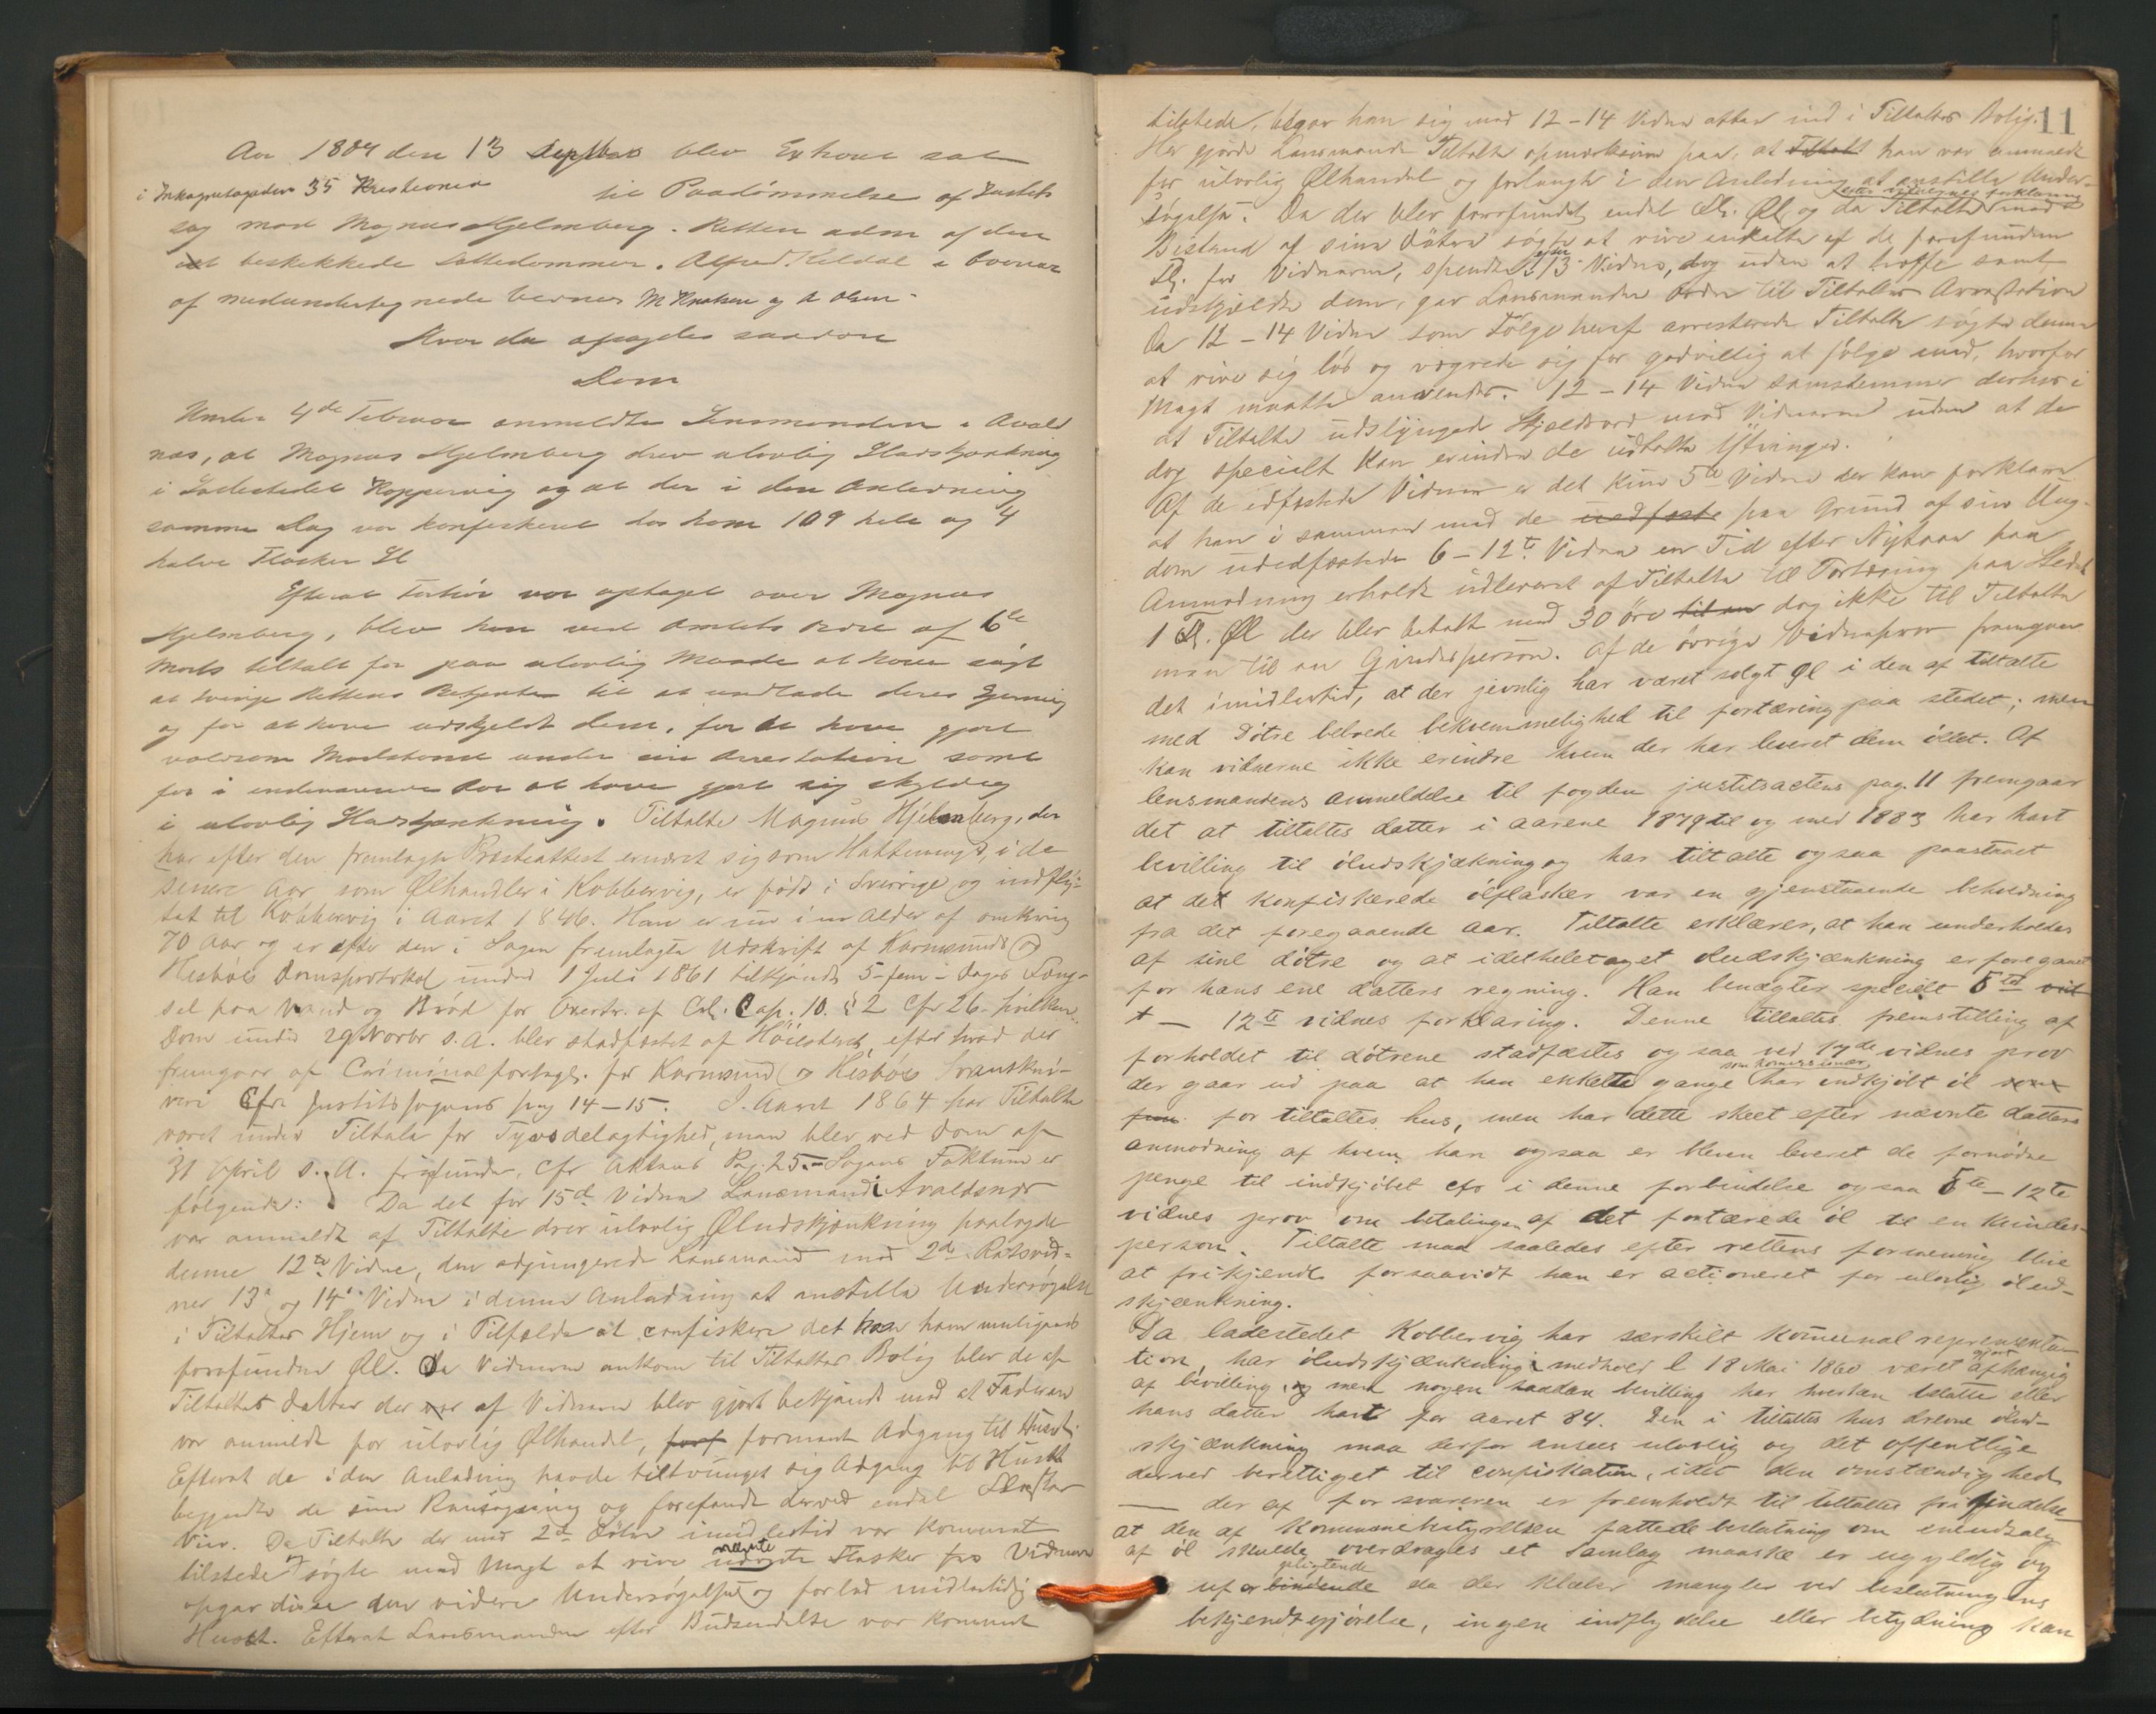 Aar 1884 den 13 Septbr blev Extraret sat
i Inkognitogaden 35 Kristiania til Paadömmelse af Justits
sag mod Magnus Hjelmberg. Retten adm af den
beskikkede Sættedommer. Alfred Keldal i Overvær
af medundertegnede Vidner M Knutsen og A Olsen.
Hvor da afsagdes saadan
Dom
Under 4de Februar anmeldte Lensmanden i Avald
nes, at Magnus Hjelmberg drev ulovlig Øludskjænkning
i Ladestedet Koppervig og at der i den Anledning
samme Dag var konfiskeret hos ham 109 hele og 4
halve Flasker Øl
Efterat Forhör var optaget over Magnus
Hjelmberg, blev han ved Amtets Ordre af 6te
Marts tiltalt for paa ulovlig Maade at have sögt
at tvinge Rettens Betjente til at undlade deres Gjerning
og for at have udskjeldt dem, for at have gjort
voldsom Modstand under sin Arrestation samt
for i endvidere for at have gjort sig skyldig
i ulovlig Øludskjænkning. Tiltalte Magnus Hjelmberg, der
har efter den fremlagte Præsteattest ernæret sig som Hattemager, i de
senere Aar som Ølhandler i Kobbervig, er född i Sverrige og indfly-
tet til Kobbervig i Aaret 1846. Han er nu i en Alder af omkring
70 Aar og er efter den i Sagen fremlagte Udskrift af Karmsunds og
Hesböe Domsprotokol under 1 Juli 1861 tilkjendt 5-fem-Dages Fæng-
sel paa Vand og Bröd for Overtr. af Crl. Cap. 10. § 2 Cfr 26. hvilken
Dom under 29 Novbr s. A. blev stadfæstet af Höiesteret efter hvad der
fremgaar af Criminalfortegn. for Karmsund og Hesböe Sorenskri-
veri Cfr Justitssagens pag 14-15. I Aaret 1864 har Tiltalte
været under Tiltale for Tyvsdelagtighed, men blev ved Dom af
31 April s. A. frifunden, cfr Aktens Pag. 25. - Sagens Faktum er
fölgende: Da det for 15de Vidne Lensmand i Avaldsnes
var anmeldt at Tiltalte drev ulovlig Øludskjænkning paalagde
denne 12te Vidne, den adjungerede Lensmand med 2de Retsvid-
ner 13de og 14de Vidne i denne Anledning at anstille Undersögelse
i Tiltaltes Hjem og i Tilfælde at confiskere det hos ham muligens
forefundne Øl. Da Vidnerne ankom til Tiltaltes Bolig blev de af
Tiltaltes Datter der var af Vidnerne blev gjort bekjendt med at Faderen
var anmeldt for ulovlig Ølhandel, forf formeent Adgang til Huset.
Efterat de i den Anledning havde tiltvunget sig Adgang til Huset
begyndte de sin Ransagning og forefandt derved endel Ølflasker
Da Tiltalte der med 2de Dötre imidlertid var kommet
tilstede, sögte med Magt at rive nævnte Flasker fra Vidnerne
opgav disse den videre Undersögelse og forlod midlertidig
Huset. Efterat Lensmanden efter Budsendelse var kommet
11
tilstede, begav han sig med 12-14 Vidne atter ind i Tiltaltes Bolig.
Her gjorde Lensmanden Tiltalte opmærksom paa, at Tiltalt han var anmeldt
for ulovlig Ølhandel og forlangte i den Anledning at anstille Under-
sögelse. Da der blev forefundet endel Fl. Øl og da Tiltalte efter vidnernes forklaring med
Bistand af sine Dötre sögte at rive enkelte af de forefundne
Fl. fra Vidnerne, spendte efter 13de Vidne, dog uden at træffe samt
udskjeldte dem, gav Lensmanden Ordre til Tiltaltes Arrestation
Da 12-14 Vidne som Fölge heraf arresterede Tiltalte sögte denne
at rive sig lös og vægrede sig for godvillig at fölge med, hvorfor
Magt maatte anvendes. 12-14 Vidne samstemmer derhos i
at Tiltalte udslyngede Skjeldsord mod Vidnerne uden at de
dog specielt kan erindre de udtalte Ytringer.
Af de edfæstede Vidner er det kun 5te Vidne der kan forklare
at han i sammen med de uedfæste paa Grund af sin Ung-
dom uedfæstede 6-12te Vidne en Tid efter Nytaar paa
Anmodning erholdt udleveret af Tiltalte til Fortæring paa Stedet
1 Fl. Øl der blev betalt med 30 öre til en dog ikke til Tiltalte
men til en Qvindesperson. Af de övrige Vidneprov fremgaar
det imidlertid, at der jevnlig har været solgt øl i den af tiltalte
med Dötre beboede bekvemmelighed til fortæring paa stedet; men
kan vidnerne ikke erindre hvem der har leveret dem öllet. Af
lensmandens anmeldelse til fogden justitsactens pag. 11 fremgaar
det at tiltaltes datter i aarene 1879 til og med 1883 har havt
bevilling til öludskjækning og har tiltalte ogsaa paastaaet
at det konfiskerede ölflasker var en gjenstaaende beholdning
fra det foregaaende aar. Tiltalte erklærer, at han underholdes
af sine dötre og at idetheletaget öludskjænkning er foregaaet
for hans ene datters regning. Han benægter specielt 5te vid
- 12te vidnes forklaring. Denne tiltaltes fremstilling af
forholdet til dötrene stadfæstes ogsaa ved vidnes prov
der gaar ud paa at han enkelte gange som kommissionær har indkjöbt öl som
for tiltaltes hus, men har dette skeet efter nævnte datters
anmodning af hvem han ogsaa er bleven leveret de fornödne
penge til indkjöbet cfr i denne forbindelse ogsaa 5te-12te
vidnes prov om betalingen af det fortærede öl til en kvindes-
person. Tiltalte maa saaledes efter rettens formening blive
at frikjende forsaavidt han er actioneret for ulovlig ölud-
skjænkning.
Da ladestedet Kobbervig har særskilt kommunal repræsenta-
tion, har öludskjænkning i medhold l 18 Mai 1860 været gjort afhængig
af bevilling, og men nogen saadan bevilling har hverken tiltalte eller
hans datter havt for aaret 84. Den i tiltaltes hus drevne ölud-
skjænkning maa derfor ansees ulovlig og det offentlige
derved berettiget til confiskation, idet den omstændighed
der af forsvareren er fremholdt til tiltaltes frifindelse
at den af Kommunebestyrelsen fattede beslutning om eneudsalg
af öl skulde overdrages et Samlag maaske er ugyldig og
uforbindende pligtende da der klarlig mangler ved beslutningens
bekjendtgjörelse, ingen indflydelse eller betydning kan